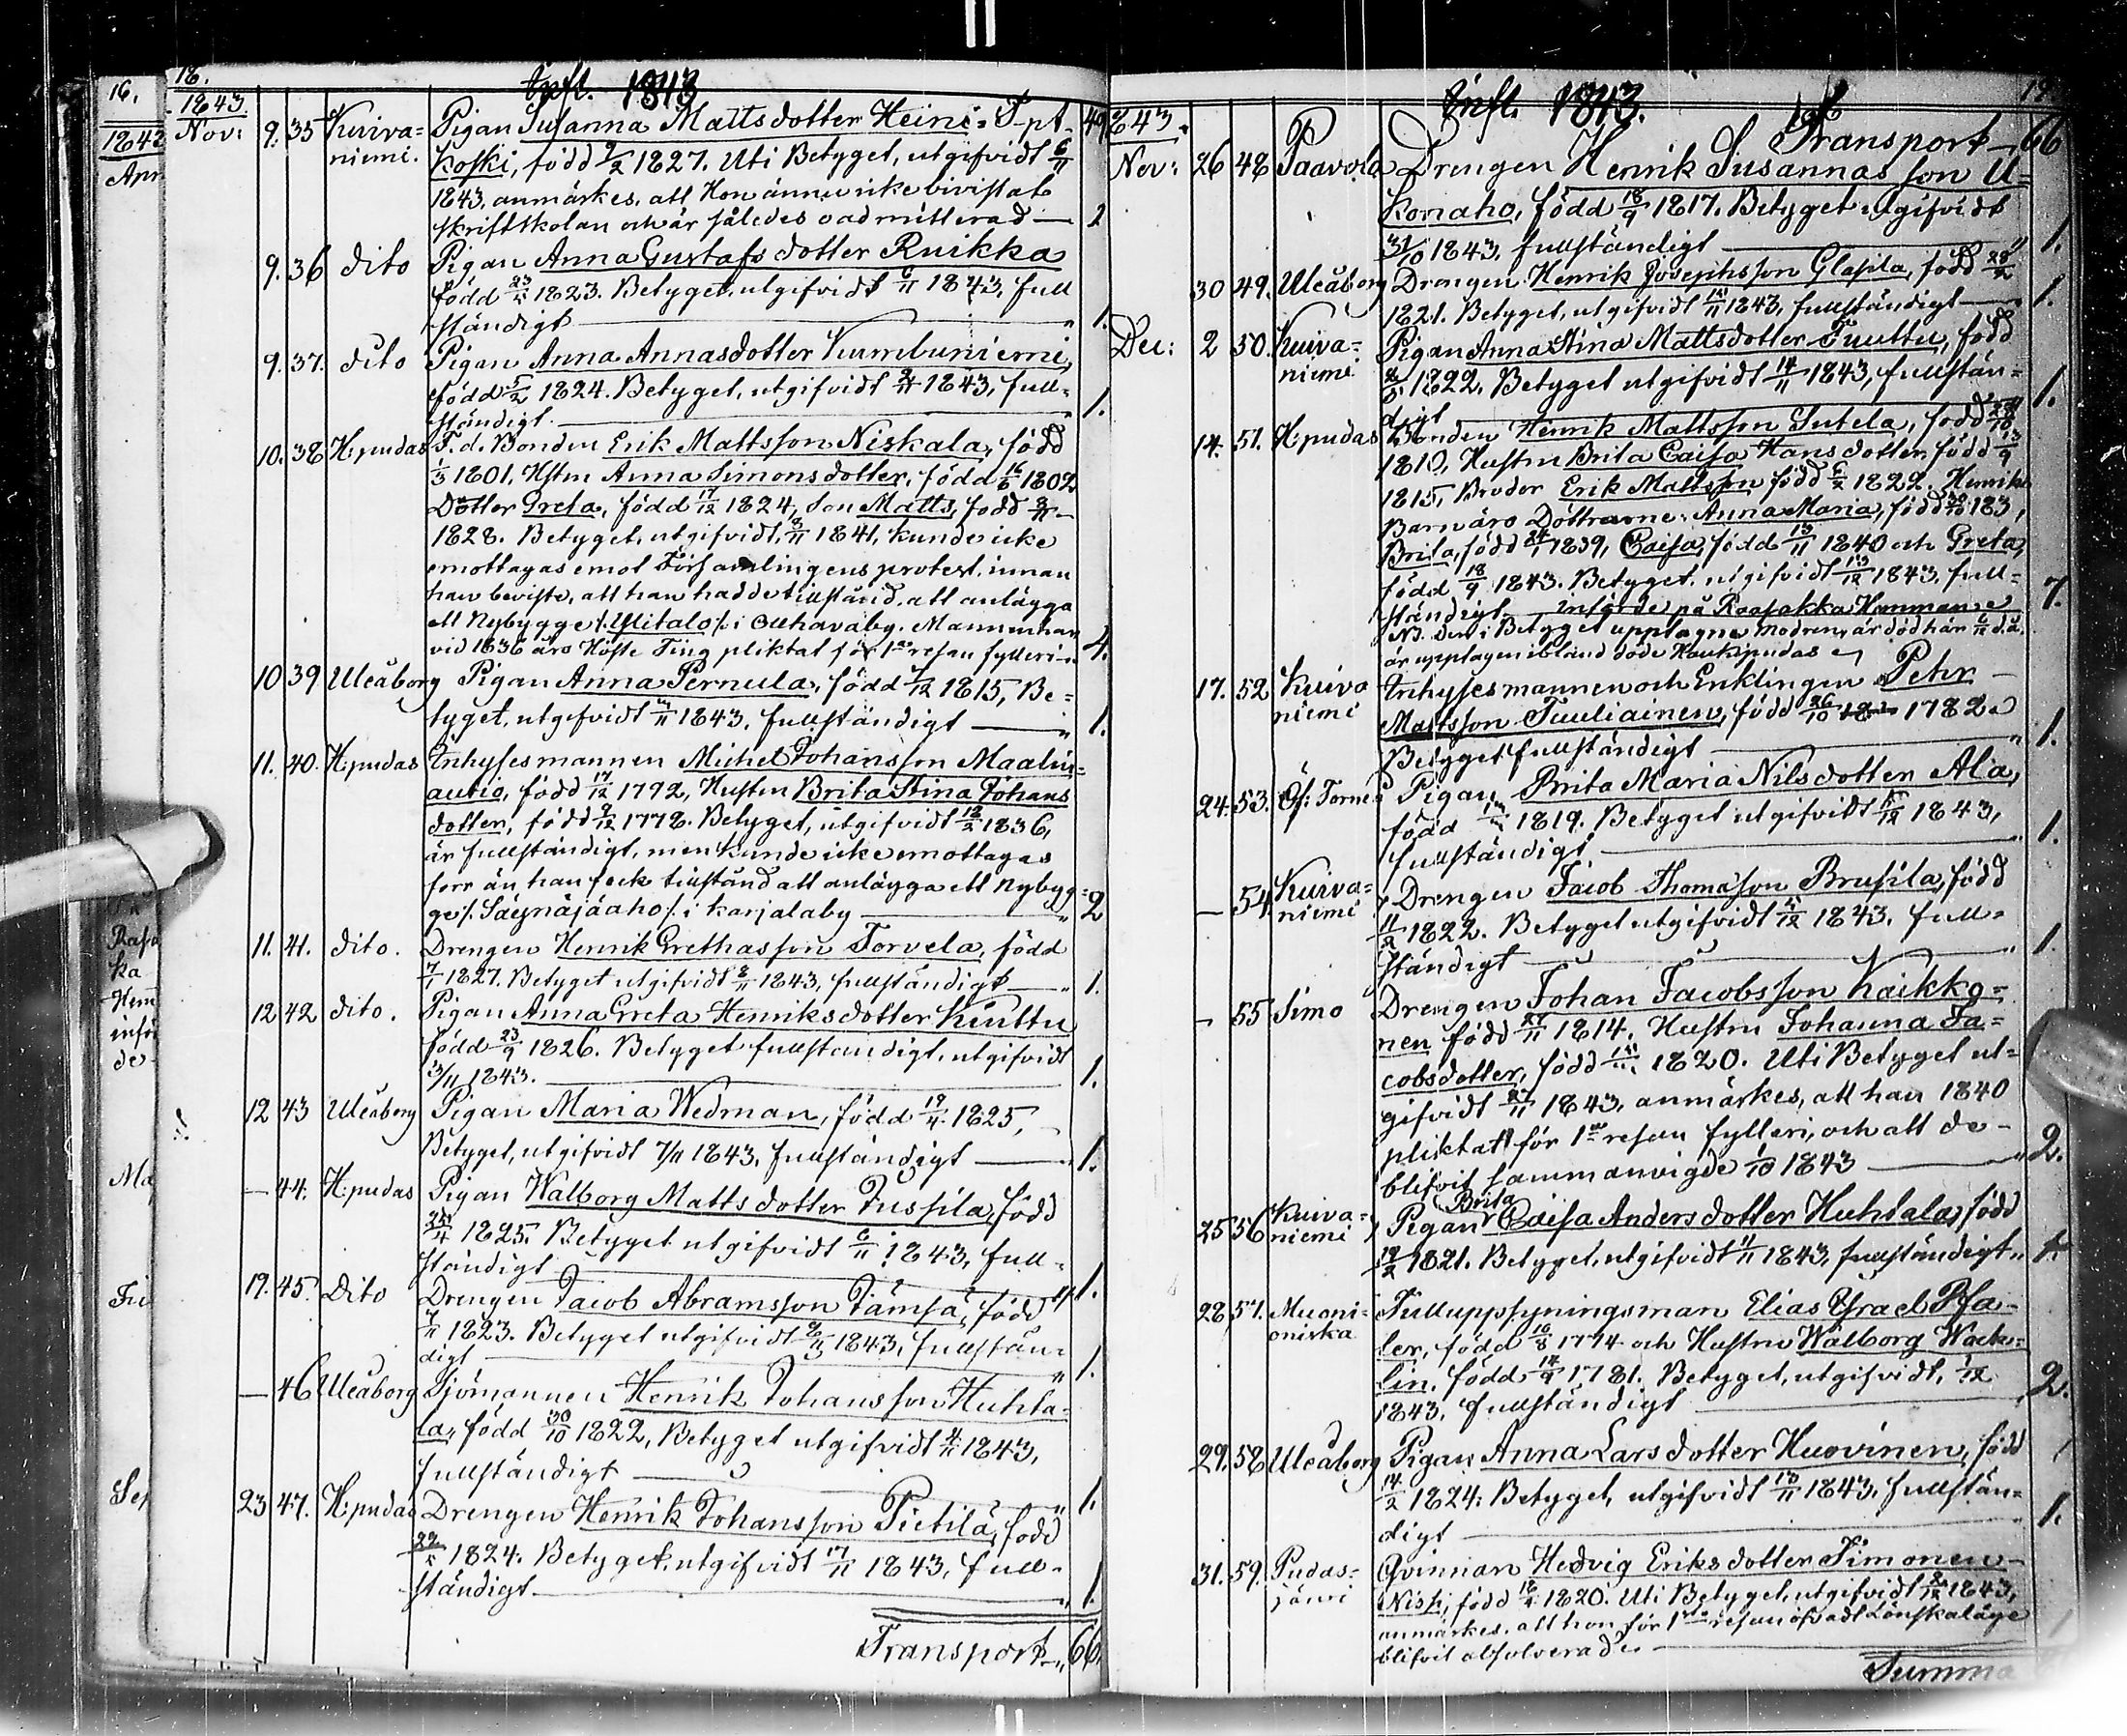 16.
1842
Apr
18.
Infl. 1843
1843
Nov: 9. 35 Kuiva= Pigan Susanna Mattsdotter Heini= T-pt 49
niemi. koski, född 9/2 1827. Uti Betyget, utgifvidt 6/11
1843, anmärkes, att Hon ännu icke bivistat
skriftskolan och är således oadmitterad — 1
9. 36 dito Pigan Anna Gustafsdotter Ruikka
född 23/5 1823. Betyget, utgifvidt 6/11 1843, full
ständigt — " 1.
9. 37. dito Pigan Anna Annasdotter Kumbuniemi,
född 5/2 1824. Betyget, utgifvidt 2/11 1843, full=
ständigt. — 1.
10. 38 H:pudas F. d. Bonden Erik Mattsson Niskala, född
1/3 1801, Hstm Anna Simonsdotter, född 16/6 1802
Dotter Greta, född 17/12 1824, Son Matts, född
1828. Betyget, utgifvidt, 8/11 1841, kunde icke
emottagas emot Församlingens protest, innan
han beviste, att han hadde tillstånd att anlägga
ett Nybygge /: Ylitalo :/ i Ollhavaby. Mannen har
vid 1836 års Höste Ting pliktat för 1:a resan fylleri " 4.
10 39 Uleåborg Pigan Anna Pernula, född 7/12 1815, Be=
tyget, utgifvidt /11 1843, fullständigt — " 1.
11. 40. H:pudas Inhysesmannen Michel Johansson Maalin=
autio, född 17/12 1792, Hustru Brita Stina Johans
dotter, född 9/12 1778. Betyget, utgifvidt 18/2 1836,
är fullständigt, men kunde icke emottagas
förr än han feck tillstånd att anlägga ett Nybyg=
ge /: Säynäjäaho :/ i karjalaby — " 2
11. 41. dito. Drengen Henrik Grethasson Torvela, född
7/1 1827. Betyget utgifvidt 8/11 1843, fullständigt — " 1.
12 42 dito. Pigan Anna Greta Henriksdotter Kinttu
född 23/9 1826. Betyget fullständigt, utgifvidt
3/11 1843. — 1.
12 43 Uleåborg Pigan Maria Wedman, född 19/4 1825,
Betyget, utgifvidt 7/11 1843, fullständigt — " 1.
— 44. H:pudas Pigan Walborg Mattsdotter Jussila, född
/4 1825. Betyget utgifvidt 6/11 1843, full=
ständigt — " 1.
19. 45. Dito Drengen Jacob Abramsson Jämsä, född
7/11 1823. Betyget utgifvidt 1843, fullstän=
digt — " 1.
— 46 Uleåborg Sjömannen Henrik Johansson Huhta=
la, född 30/10 1822, Betyget utgifvidt 4/11 1843,
fullständigt — " 1.
23 47. H:pudas Drengen Henrik Johansson Pietilä, född
22/5 1824. Betyget, utgifvidt 17/11 1843, full=
ständigt. — " 1.
Transport — " 66
Rasa
ka
Hem
infö
de
Ma
Sep
19.
Infl. 1843.
1843. Transport — 66
Nov: 26 48 Paavola Drengen Henrik Susannasson U=
konaho, född 18/9 1817. Betyget utgifvidt
31/10 1843, fullständigt — " 1.
30 49. Uleåborg Drengen Henrik Josephsson Glasila, född 28/2
1821. Betyget, utgifvidt 1843, fullständigt — 1.
Dec: 2 50. Kuiva= Pigan Anna Stina Mattsdotter Tuuttu, född
niemi 1822, Betyget utgifvidt 14/11 1843, fullstän=
digt — " 1.
14. 51. H:pudas Bonden Henrik Mattsson Sutela, född
1810, Hustru Brita Caisa Hansdotter född 13/9
1815, Broder Erik Mattsson född 6/2 1822. Henriks
Barn äro Döttrarne: Anna Maria, född 183,
Brita, född 24/1 1839, Caisa, född 13/11 1840 och Greta,
född 18/9 1843. Betyget, utgifvidt 13/12 1843, full=
ständigt införde på Raasakka Hemman 7.
NB. den i Betyget upptagne modren, är död här d.å.
är upptagen ibland döde Haukipudas
17. 52 Kuiva Inhysesmannen och Enklingen Petr
niemi Mattsson Tuuliainen, född 26/10 1782.
Betyget fullständigt — " 1.
24. 53. Öf: Torneå Pigan Brita Maria Nilsdotter Ala,
född 1819. Betyget utgifvidt /12 1843,
fullständigt. — " 1.
— 54. Kuiva= Drengen Jacob Thomasson Brusila, född
niemi 11/2 1822. Betyget utgifvidt /12 1843, full=
ständigt — " 1.
— 55 Simo Drengen Johan Jacobsson Kaikko=
nen född 27/11 1814, Hustru Johanna Ja=
cobsdotter, född 1820. Uti Betyget ut=
gifvidt 27/11 1843, anmärkes, att han 1840
pliktat för 1:a resan fylleri, och att de
blifvit sammanvigde 1/10 1843 — " 2.
25 56 Kuiva= Pigan Brita Caisa Andersdotter Huhtala, född
niemi 19/2 1821. Betyget, utgifvidt 11 1843, fullständigt " 1.
28 57. Muoni= Tulluppsyningsman Elias Ysrael Pfa=
oniska ler, född 16/8 1774 och Hustru Walborg Wack=
lin. född 14/9 1781. Betyget, utgifvidt, 1/12
1843, fullständigt — 2.
29. 58 Uleåborg Pigan Anna Larsdotter Huovinen, född
14/2 1824; Betyget, utgifvidt 13/11 1843, fullstän=
digt — " 1.
31. 59. Pudas= Qvinnan Hedvig Eriksdotter Simonen
järvi Nissi, född 18/ 1820. Uti Betyget, utgifvidt /12 1843,
anmärkes, att hon för 1:sta resan öfvadt Lönskaläge
blifvit absolverad. — 1
Summa